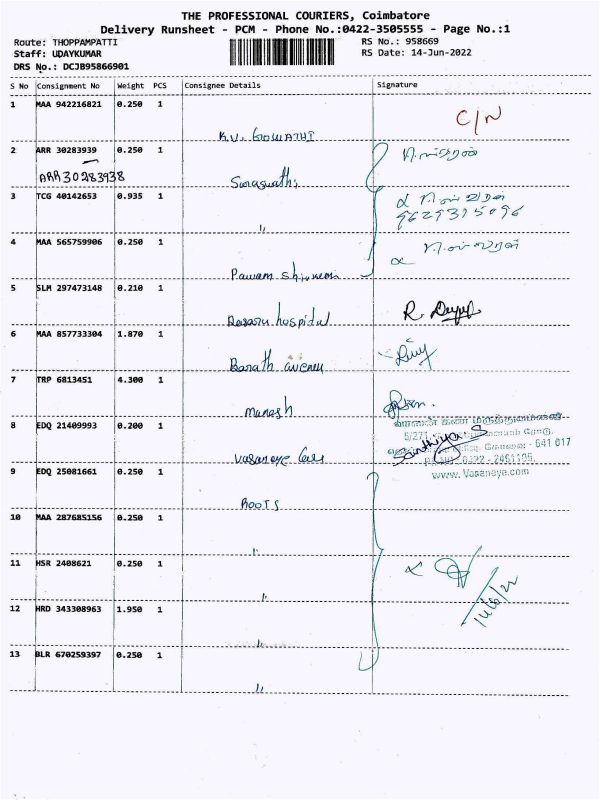 THE PROFESSIONAL COURIERS, Coimbatore
Delivery Runsheet - PCM - Phone No.:0422-3505555 - Page No.:1
Route: THOPPAMPATTI
RS No.: 958669
Staff: UDAYKUMAR
RS Date: 14-Jun-2022
DRS No.: DCJB95866901
S No Consignment No Weight PCS Consignee Details Signature
1 MAA 942216821 0.250 1
C/N
K.V. GOWATHI
2 ARR 30283939 0.250 1
ARR30283938
Saraswathi
3 TCG 40142653 0.935 1
9629395096
"
4 MAA 565759906 0.250 1
Pawam
5 SLM 297473148 0.210 1
hospital
R.
6 MAA 857733304 1.870 1
Barath avenue
7 TRP 6813451 4.300 1
8 EDQ 21409993 0.200 1
5/271
641 017
0422 - 2461195
www. Vasaneye.com
Vasaneye Care
9 EDQ 25081661 0.250 1
ROOTS
10 MAA 287685156 0.250 1
"
11 HSR 2408621 0.250 1
"
12 HRD 343308963 1.950 1
14/6/22
"
13 BLR 670259397 0.250 1
"